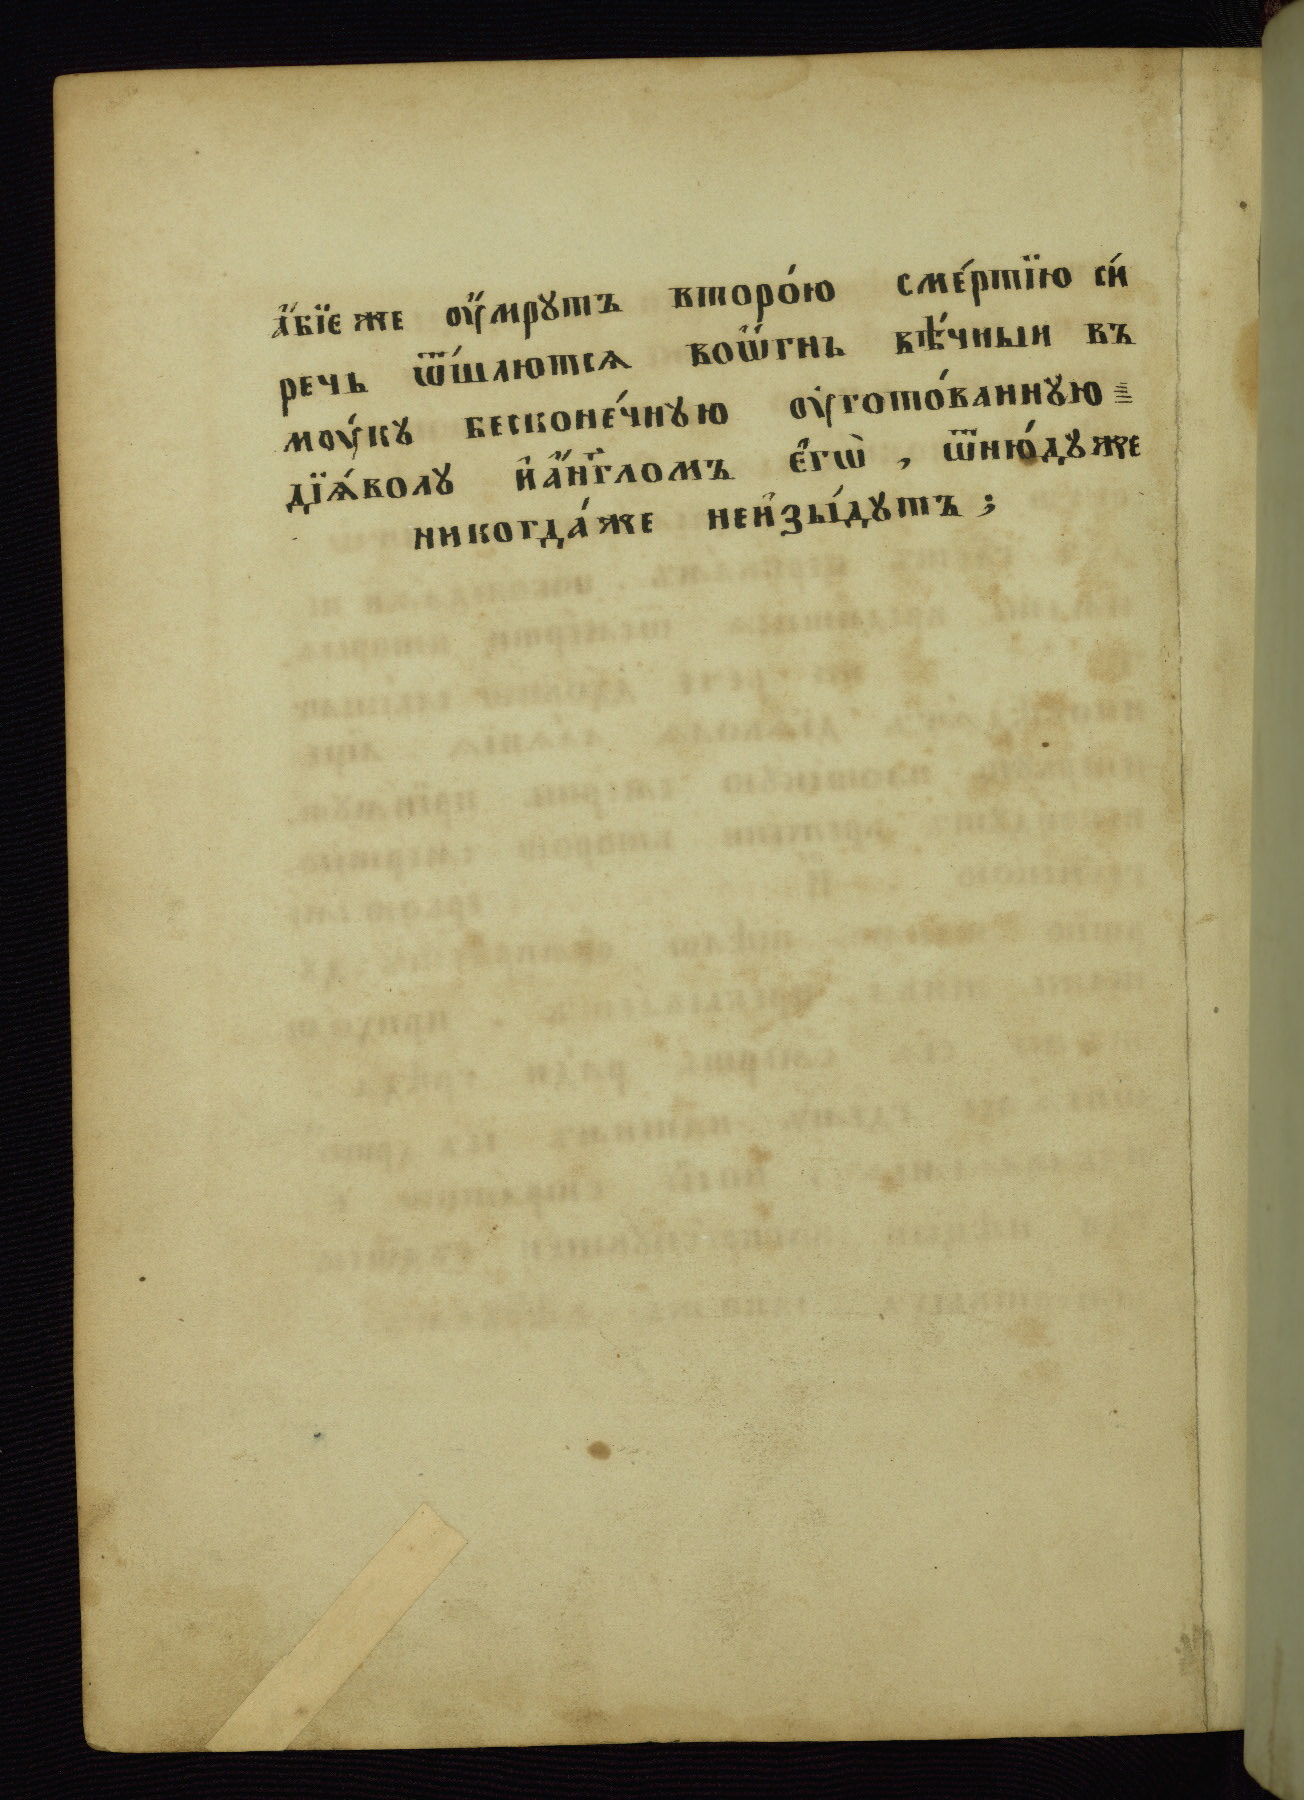 а҆́бїе же ᲂу҆́мрꙋтъ второ́ю сме́ртїю си́
речь ѿшлю́тсѧ воѻ҆́гнь вѣ́чныи въ
мᲂу́кꙋ бесконе́чнꙋю ᲂу҆гото́ваннꙋю
дїѧ́волꙋ и҆а҆́нг҃ломъ є҆гѡ̀ , ѿню́дꙋже
никогда́же неи҆зы́дꙋтъ ;